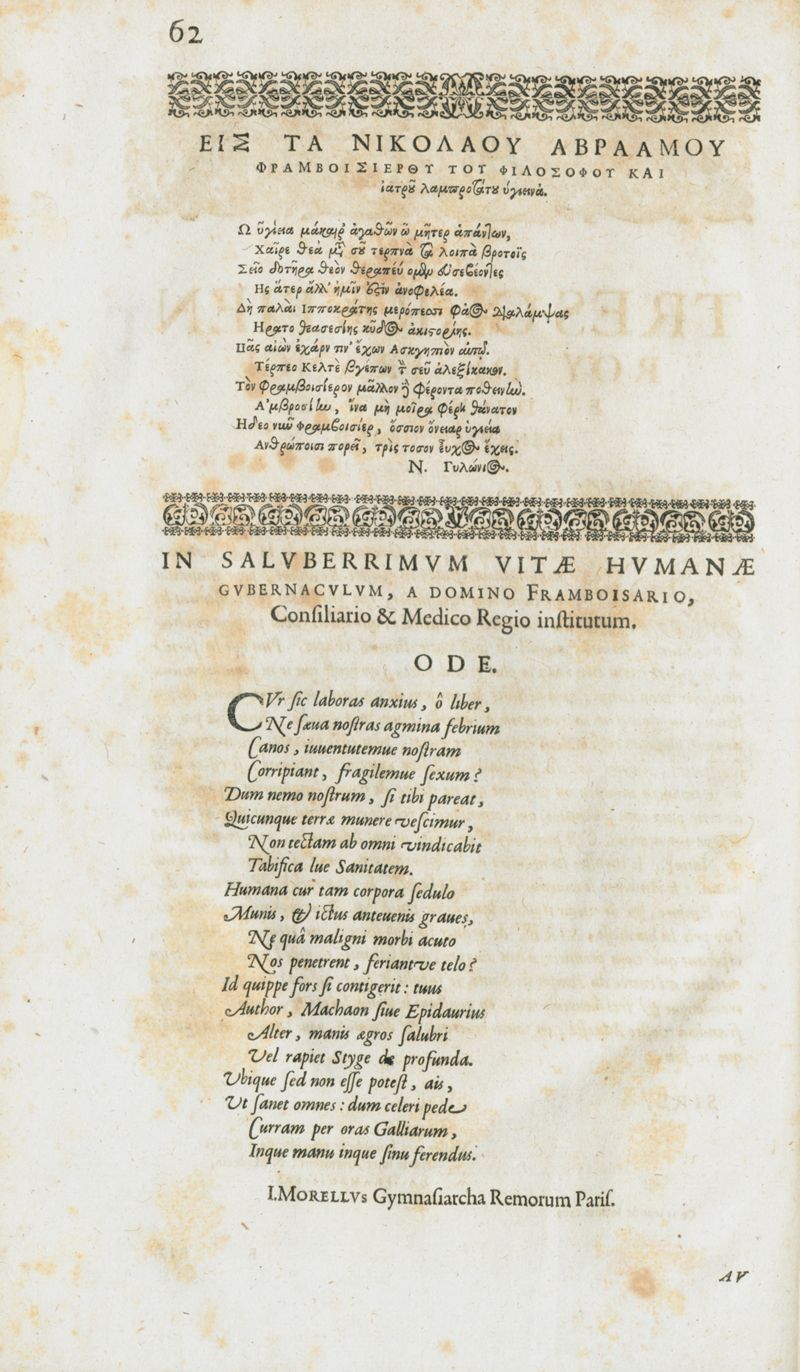 62
ΕΙΣ ΤΑ ΝΙΚΟΛΑΟΥ ΑΒΡΑΑΜΟΥ
ΦΡΑΜΒΟΙΣΙΕΡΘΥ ΤΟΥ ΦΙΛΟΣΟΦΟΥ ΚΑΙ
ἰατροῦ λαμπροτάτου ὑγιεινά.
Ω ὑγίεια μάκαιρ ἀγαθῶν ὦ μῆτερ ἁπάντων,
Χαῖρε θεά σοῦ τερπνὰ λοιπὰ βροτοῖς
Σεῖο θεὸν
Ης ἄτερ ἄλλ' ἡμῖν ἀνοφελέα.
Δὴ παλαὶ Ιπποκράτης μερόπεσσι
Ηρατο
Πᾶς αἰὼν ἔχων Ασκληπιὸν
Τέρπεο Κελτὲ σεῦ ἀλεξίκακον.
Τὸν φραμβοισίερον μᾶλλον φέροντα
Α'μβροσίην, ἵνα μὴ μοῖρα φέρῃ θάνατον
Ηδεο νῦν φραμβοισίερ, ὅσσιον ὄνειαρ ὑγίεια
Ανθρώποισι πορεῖ, τρὶς τοσον εὖχος ἔχεις.
Ν. Γυλώνιος.
IN SALVBERRIMVM VITÆ HVMANÆ
GVBERNACVLVM, A DOMINO FRAMBOISARIO,
Conſiliario & Medico Regio inſtitutum.
ODE.
CVr ſic laboras anxius, ô liber,
Ne ſæua noſtras agmina febrium
Canos, iuuentutemue noſtram
Corripiant, fragilemue ſexum?
Dum nemo noſtrum, ſi tibi pareat,
Quicunque terræ munere veſcimur,
Non tectam ab omni vindicabit
Tabifica lue Sanitatem.
Humana cur tam corpora ſedulo
Munis, & ictus anteuenis graues,
Ne quâ maligni morbi acuto
Nos penetrent, feriantve telo?
Id quippe fors ſi contigerit: tuus
Author, Machaon ſiue Epidaurius
Alter, manis ægros ſalubri
Vel rapiet Styge de profunda.
Vbique ſed non eſſe poteſt, ais,
Vt ſanet omnes: dum celeri pede
Curram per oras Galliarum,
Inque manu inque ſinu ferendus.
I. MORELLVS Gymnaſiarcha Remorum Pariſ.
AV